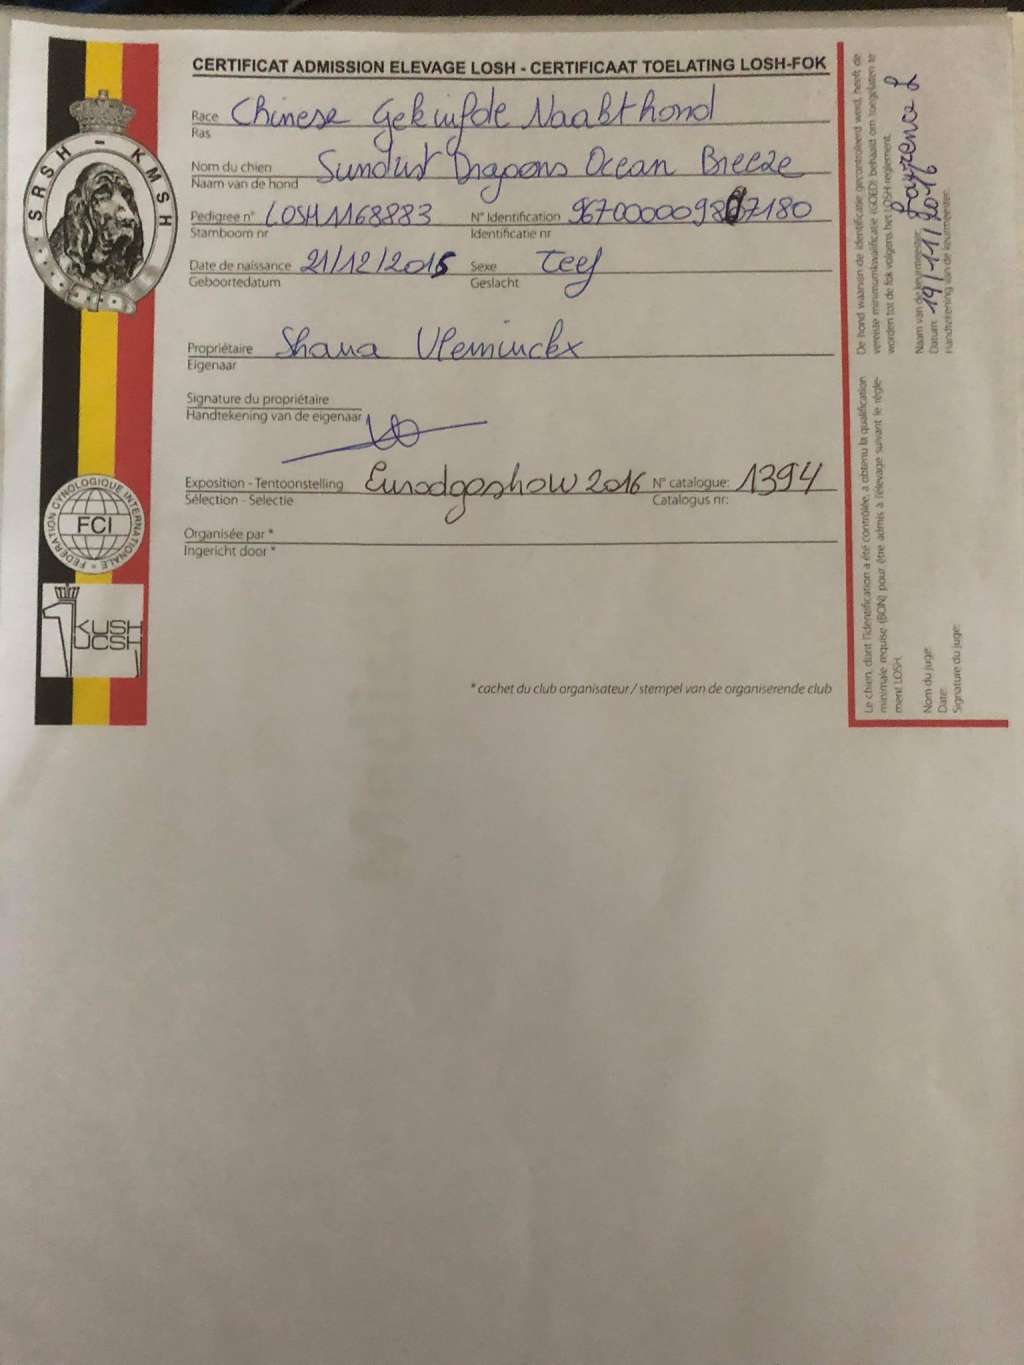 CERTIFICAT ADMISSION ELEVAGE LOSH - CERTIFICAAT TOELATING LOSH-FOK
SRSH - KMSH
Race Chinese Gekuifde Naakthond
Ras
Nom du chien Sundust Dragoons Ocean Breeze
Naam van de hond
Pedigree n° LOSH1168883 N° Identification 967000009807180
Stamboom nr Identificatie nr
Date de naissance 21/12/2015 Sexe teef
Geboortedatum Geslacht
Propriétaire Shana Vleminckx
Eigenaar
Signature du propriétaire
Handtekening van de eigenaar
Exposition - Tentoonstelling Eurodogshow 2016 N° catalogue: 1394
Sélection - Selectie Catalogus nr:
Organisée par *
Ingericht door *
FEDERATION CYNOLOGIQUE INTERNATIONALE
FCI
KUSH
UCSH
* cachet du club organisateur / stempel van de organiserende club
De hond waarvan de identificatie gecontroleerd werd, heeft de
vereiste minimumkwalificatie (GOED) behaald om toegelaten te
worden tot de fok volgens het LOSH-reglement.
Naam van de keurmeester:
Datum: 19/11/2016
Handtekening van de keurmeester:
Le chien, dont l'identification a été contrôlée, a obtenu la qualification
minimale requise (BON) pour être admis à l'élevage suivant le règle-
ment LOSH.
Nom du juge:
Date:
Signature du juge: